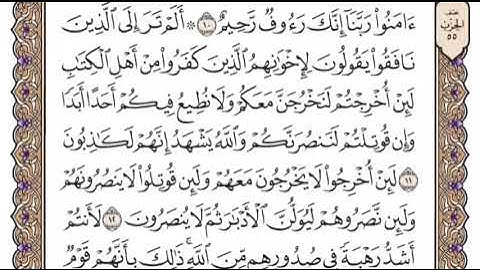 ءَامَنُوا۟ رَبَّنَآ إِنَّكَ رَءُوفٌ رَّحِيمٌ ١٠ ۞ أَلَمْ تَرَ إِلَى ٱلَّذِينَ
نَافَقُوا۟ يَقُولُونَ لِإِخْوَٰنِهِمُ ٱلَّذِينَ كَفَرُوا۟ مِنْ أَهْلِ ٱلْكِتَٰبِ
لَئِنْ أُخْرِجْتُمْ لَنَخْرُجَنَّ مَعَكُمْ وَلَا نُطِيعُ فِيكُمْ أَحَدًا أَبَدًا
وَإِن قُوتِلْتُمْ لَنَنصُرَنَّكُمْ وَٱللَّهُ يَشْهَدُ إِنَّهُمْ لَكَٰذِبُونَ
١١ لَئِنْ أُخْرِجُوا۟ لَا يَخْرُجُونَ مَعَهُمْ وَلَئِن قُوتِلُوا۟ لَا يَنصُرُونَهُمْ
وَلَئِن نَّصَرُوهُمْ لَيُوَلُّنَّ ٱلْأَدْبَٰرَ ثُمَّ لَا يُنصَرُونَ ١٢ لَأَنتُمْ
أَشَدُّ رَهْبَةً فِى صُدُورِهِم مِّنَ ٱللَّهِ ۚ ذَٰلِكَ بِأَنَّهُمْ قَوْمٌ
الحزب
٥٥